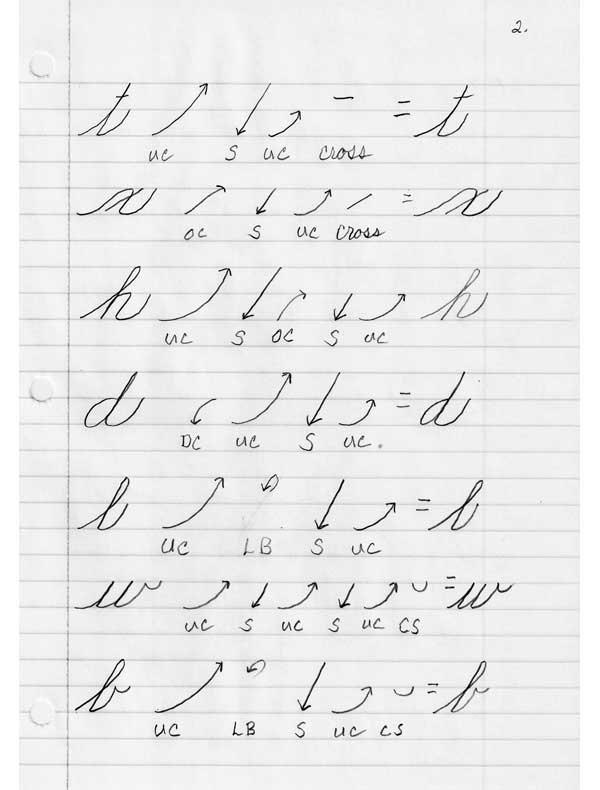 2.
t - = t
UC S UC CROSS
x = x
OC S UC CROSS
h h
UC S OC S UC
d = d
DC UC S UC.
l = l
UC LB S UC
w = w
UC S UC S UC CS
b = b
UC LB S UC CS